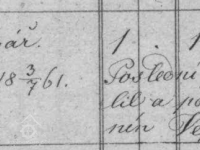 ář. 1. 1
18 3/7 61. Poslední
lil a po
nín Ve